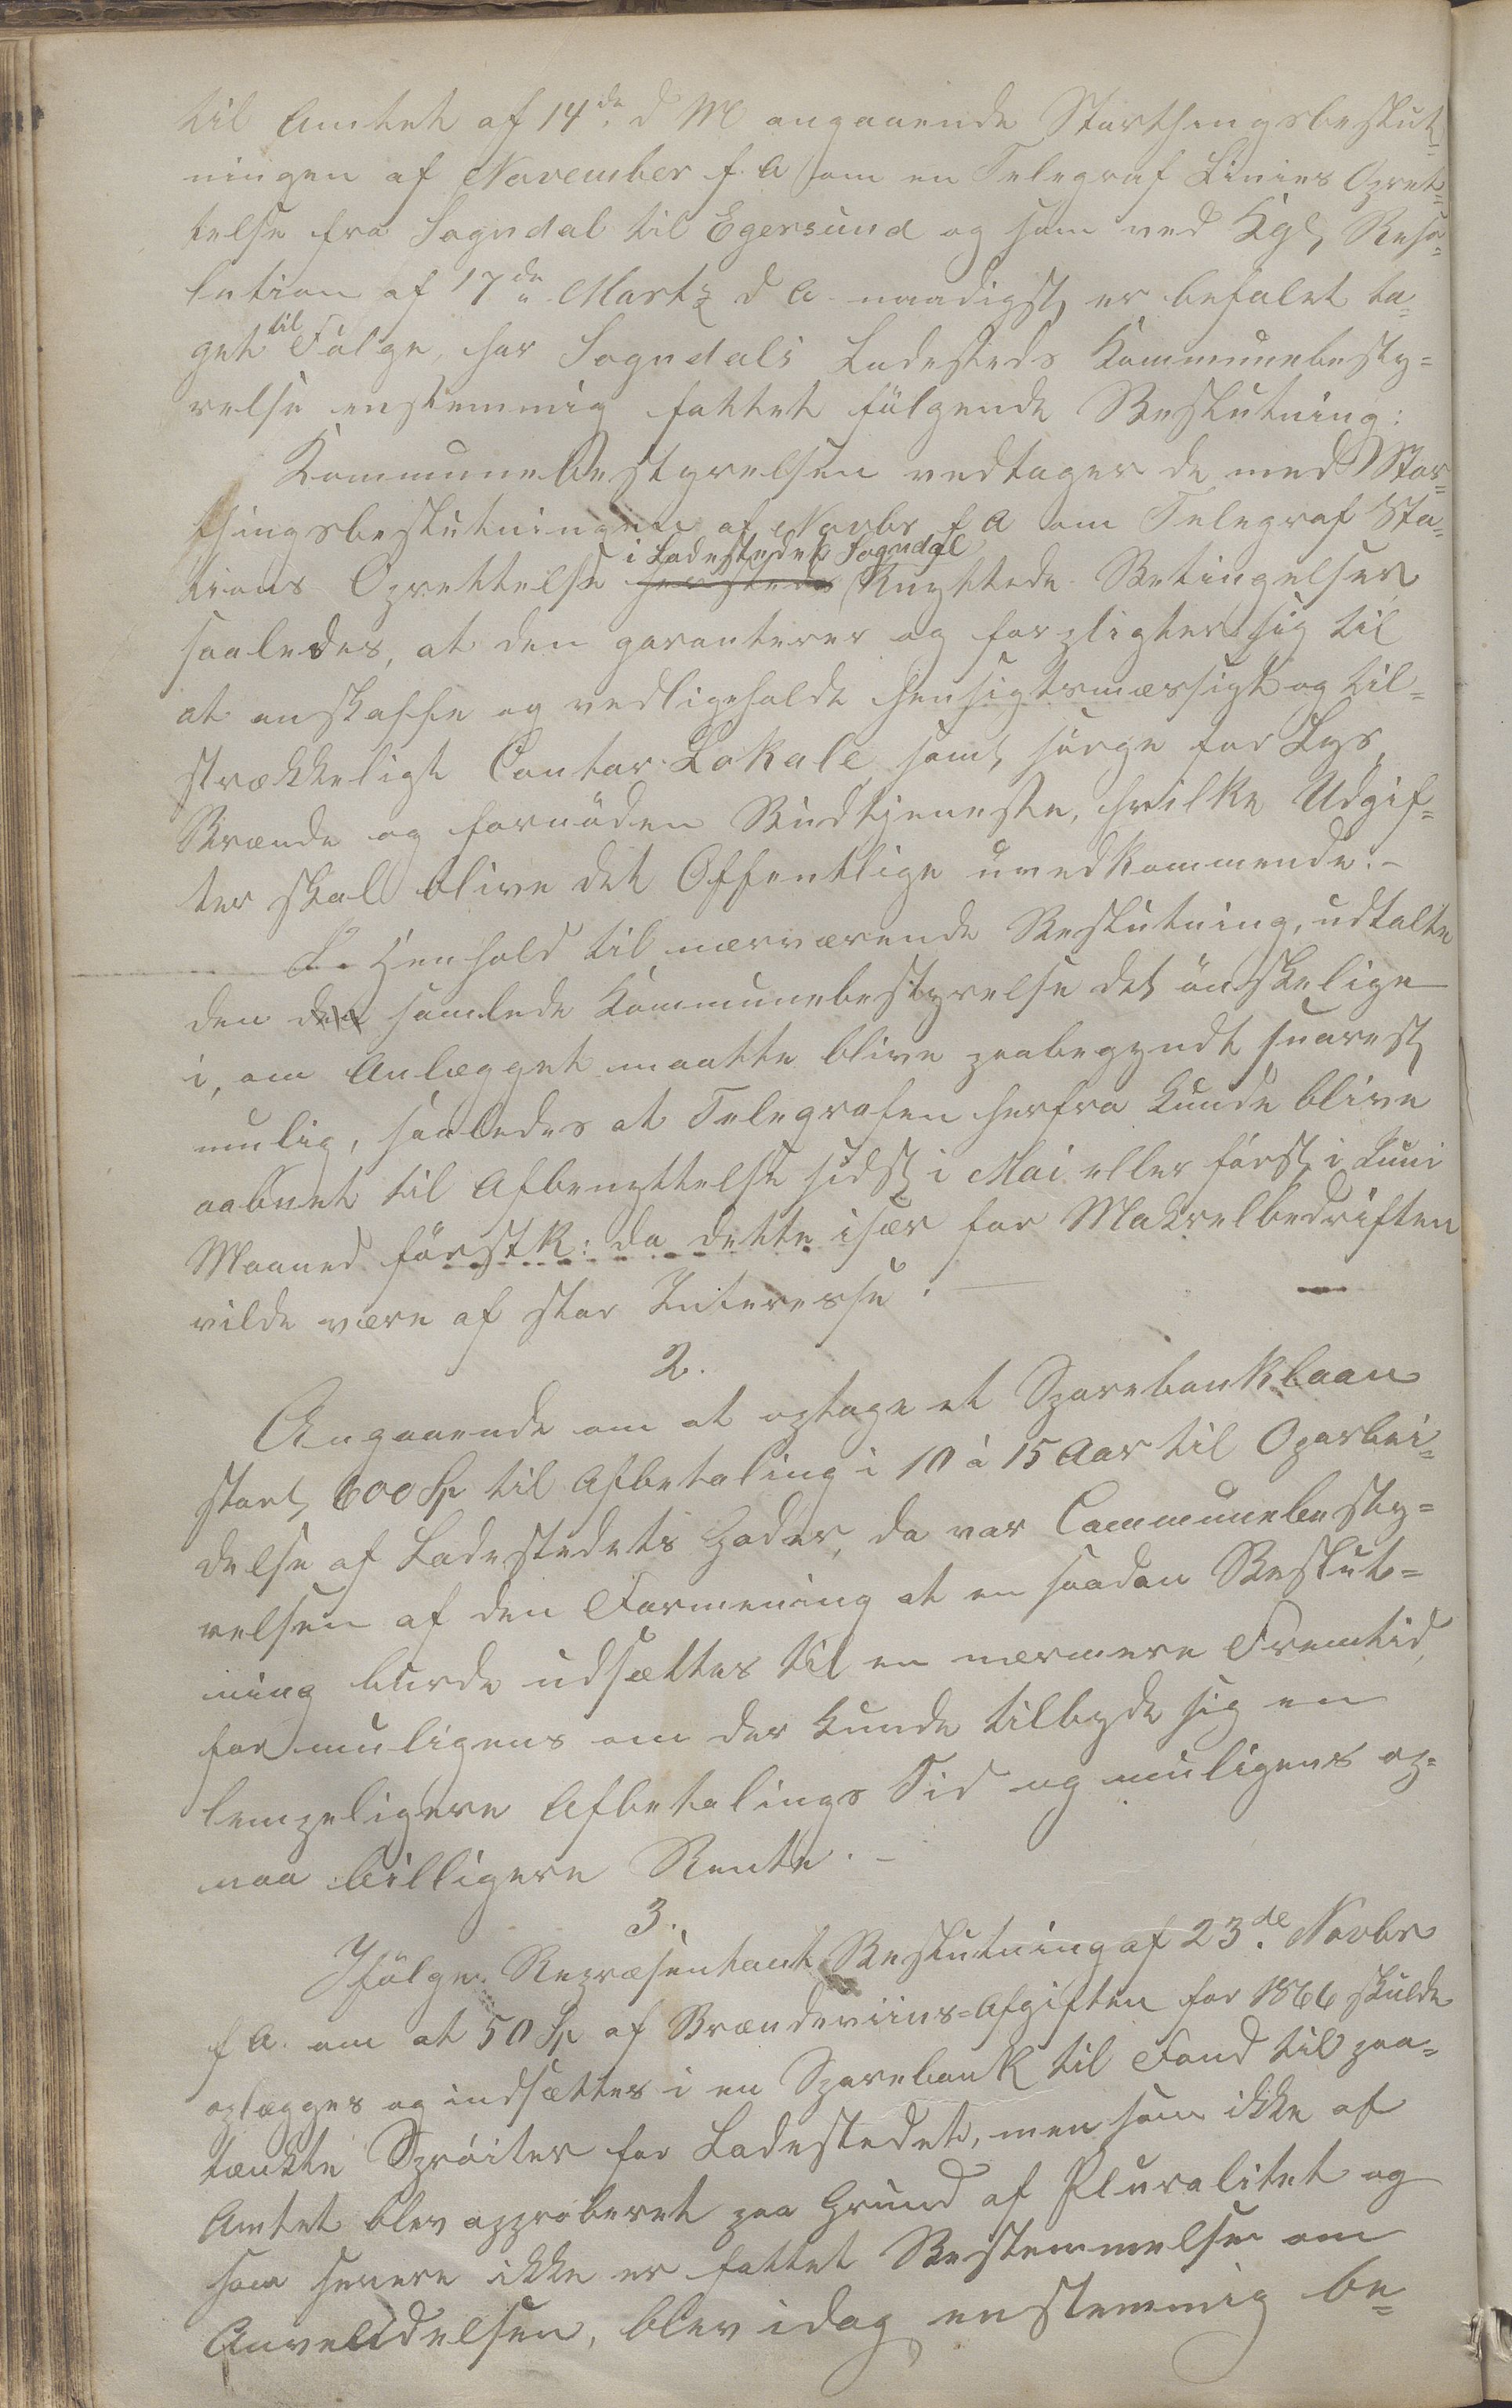 til Amtet af 14de d M angaaende Storthingsbeslut-
ningen af November f. A om en Telegraf Linies Opret-
telse fra Sogndal til Egersund og som ved Kgl Reso-
lution af 17de Marts d A naadigst er befalet ta-
get til Følge, har Sogndals Ladesteds Kommunebesty-
relse enstemmig fattet følgende Beslutning:
Kommunebestyrelsen vedtager de med Stor-
thingsbeslutningen af Novbr f A om Telegraf Sta-
tions Oprettelse i Ladestedet Sogndal knyttede Betingelser
saaledes, at den garanterer og forpligter sig til
at anskaffe og vedligeholde hensigtsmæssigt og til-
strækkeligt Contor-Lokale samt sørge for Lys,
Brænde og fornøden Budtjeneste, hvilke Udgif-
ter skal blive det Offentlige uvedkommende. -
I Henhold til nærværende Beslutning, udtalte
den den samlede Kommunebestyrelse det ønskelige
i, om Anlægget maatte blive paabegyndt snarest
mulig, saaledes at Telegrafen herfra kunde blive
aabnet til Afbenyttelse sidst i Mai eller først i Juni
Maaned førstk: da dette især for Makrelbedriften
vilde være af stor Interesse. -
2.
Angaaende om at optage et Sparebanklaan
stort 600 Sp til Afbetaling i 10 à 15 Aar til Oparbei-
delse af Ladestedets Gader, da var Communebesty-
relsen af den Formening at en saadan Beslut-
ning burde udsættes til en nærmere Fremtid,
for muligens om der kunde tilbyde sig en
lempeligere Afbetalings Tid og muligens op-
naa billigere Rente. -
3.
Ifølge Repræsentant Beslutning af 23de Novbr
f A. om at 50 Sp af Brændeviins-Afgiften for 1866 skulde
oplægges og indsættes i en Sparebank til Fond til paa-
tænkte Sprøiter for Ladestedet, men som ikke af
Amtet blev approberet paa Grund af Pluralitet og
som senere ikke er fattet Bestemmelse om
Anvendelsen, blev idag enstemmig be-